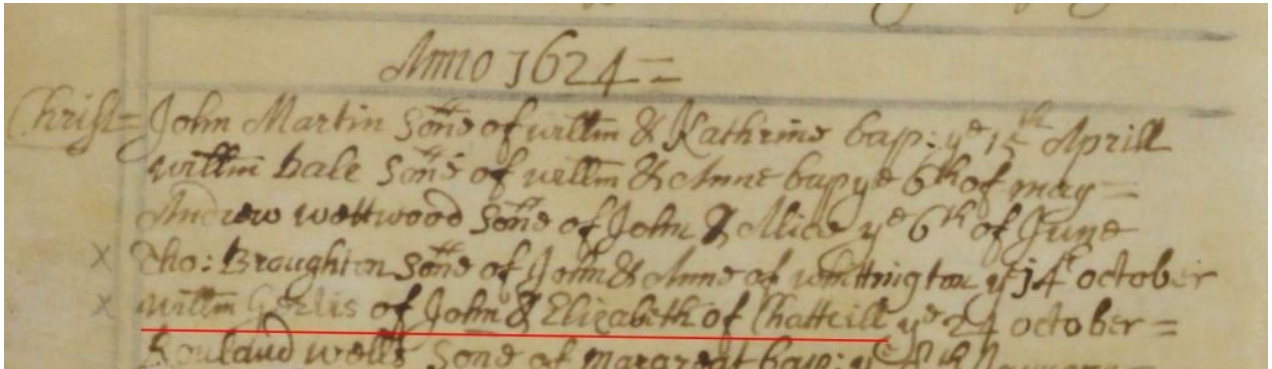 Anno 1624=
Christ= John Martin sone of willm & Kathrine bap: ye 15th Aprill
willm Bale sone of willm & Anne bap ye 6th of may=
Andrew wettwood sone of John & Alice ye 6th of June
Tho: Broughton sone of John & Anne of whittington ye 14 october
willm of John & Elizabeth of Chattcill ye 24 october=
Rouland wells sone of margareat bap: ye